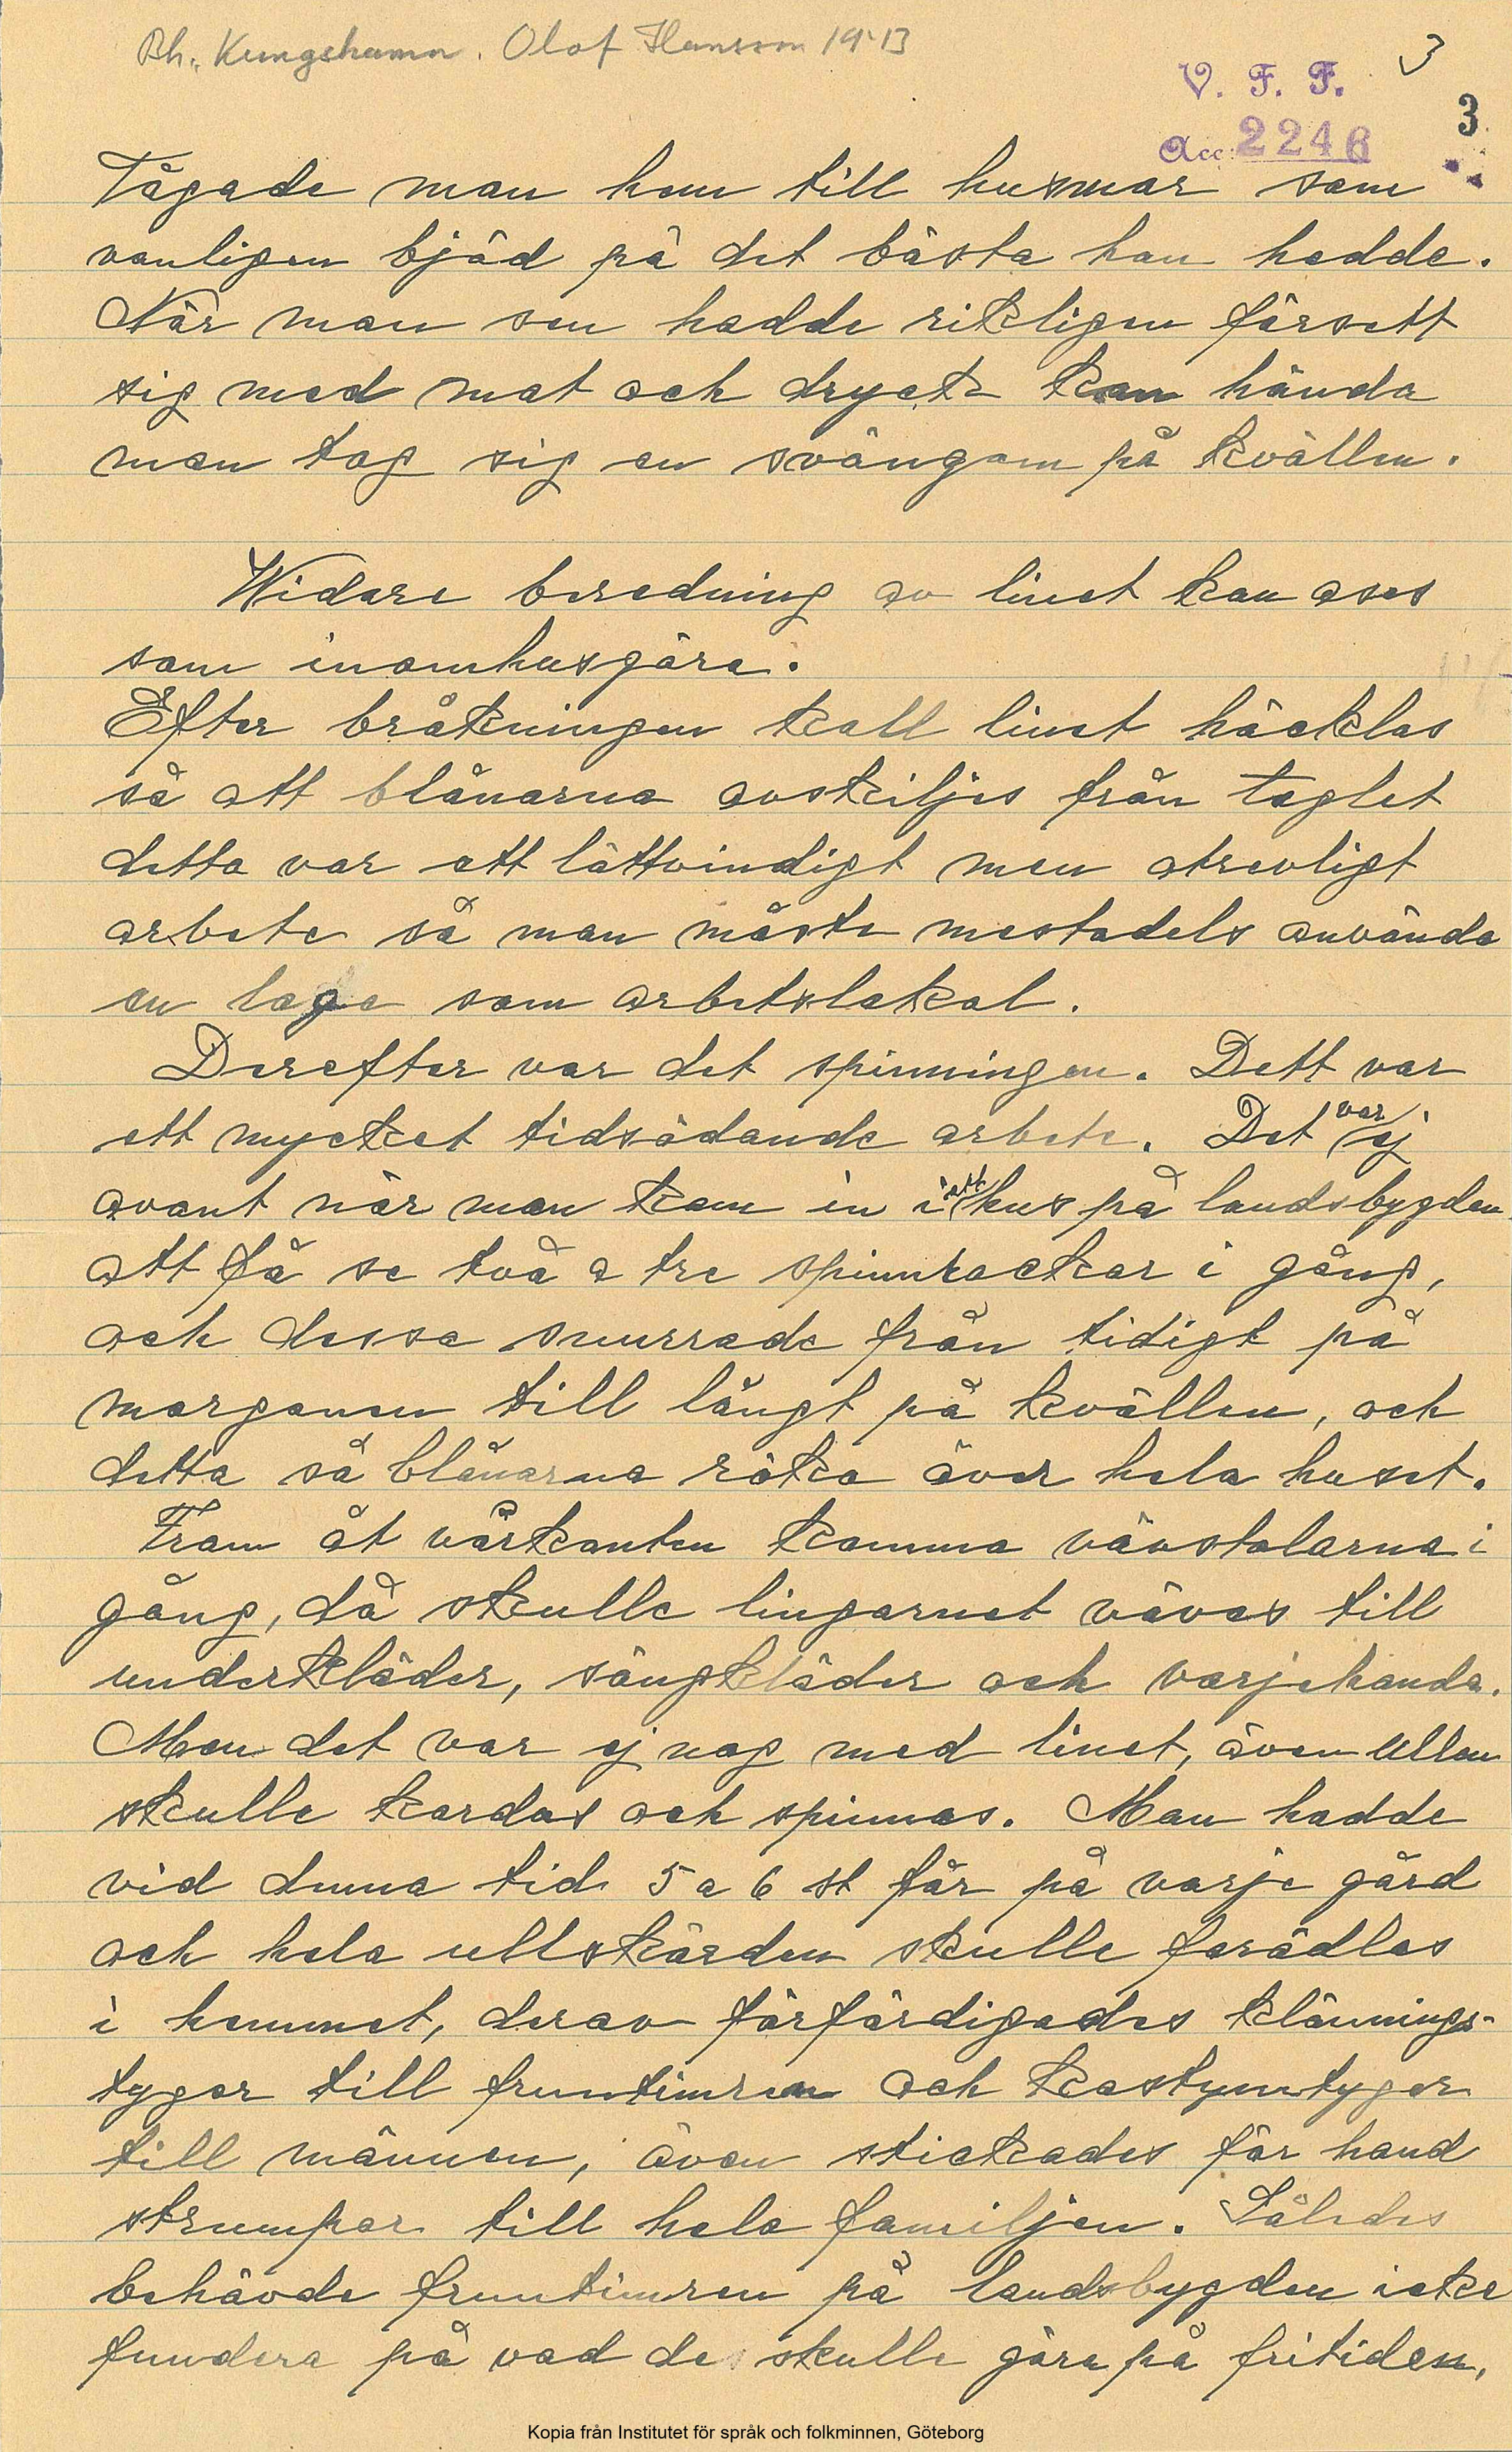 Bh. Kungshamn. Olof Hansson 1943
3
V. F. F.
3
Acc: 2246
Tågade man hem till husmor som
vanligen bjöd på det bästa hon hadde.
När man sen hadde rikligen försett
sig med mat och dryck kan hända
man tog sig en svängom på kvällen.
Widare beredning av linet kan anses
som inomhusgöra.
Efter bråkningen skall linet häcklas
så att blånarna avskiljes från taglet
detta var ett lättvindigt men otrevligt
arbete så man måste mestadels använda
en loge som arbetslokal.
Derefter var det spinningen. Dett var
ett mycket tidsödande arbete. Det var ej
ovant när man kom in i ett hus på landsbygden
att få se två a tre spinnrockar i gång,
och dessa snurrade från tidigt på
morgonen till långt på kvällen, och
detta så blånarna röka över hela huset.
Fram åt vårkanten komma vävstolarna i
gång, då skulle lingarnet vävas till
underkläder, sängkläder och varjehanda.
Men det var ej nog med linet, även ullen
skulle kardas och spinnas. Man hadde
vid denna tid 5 a 6 st får på varje gård
och hela ullskörden skulle forädlas
i hemmet, derav förfärdigades klännings-
tyger till fruntimren och kostymtyger
till männen, även stickades för hand
strumpor till hela familjen. Således
behövde fruntimren på landsbygden icke
fundera på vad de skulle göra på fritiden,
Kopia från Institutet för språk och folkminnen, Göteborg